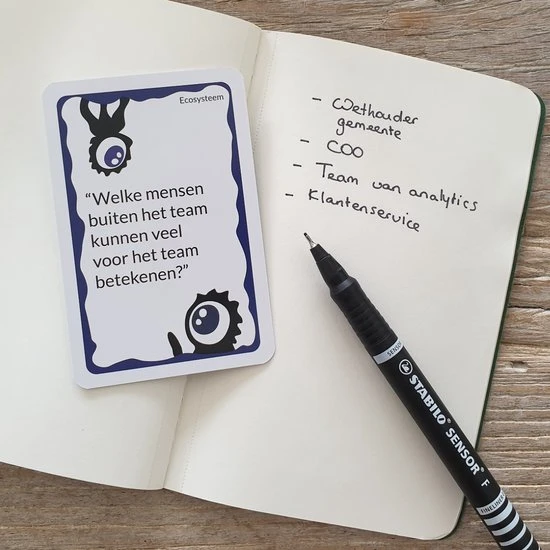 Ecosysteem
“Welke mensen
buiten het team
kunnen veel
voor het team
betekenen?”
- Wethouder
gemeente
- COO
- Team van analytics
- Klantenservice
STABILO® SENSOR® F
FINELINER
SENSOR